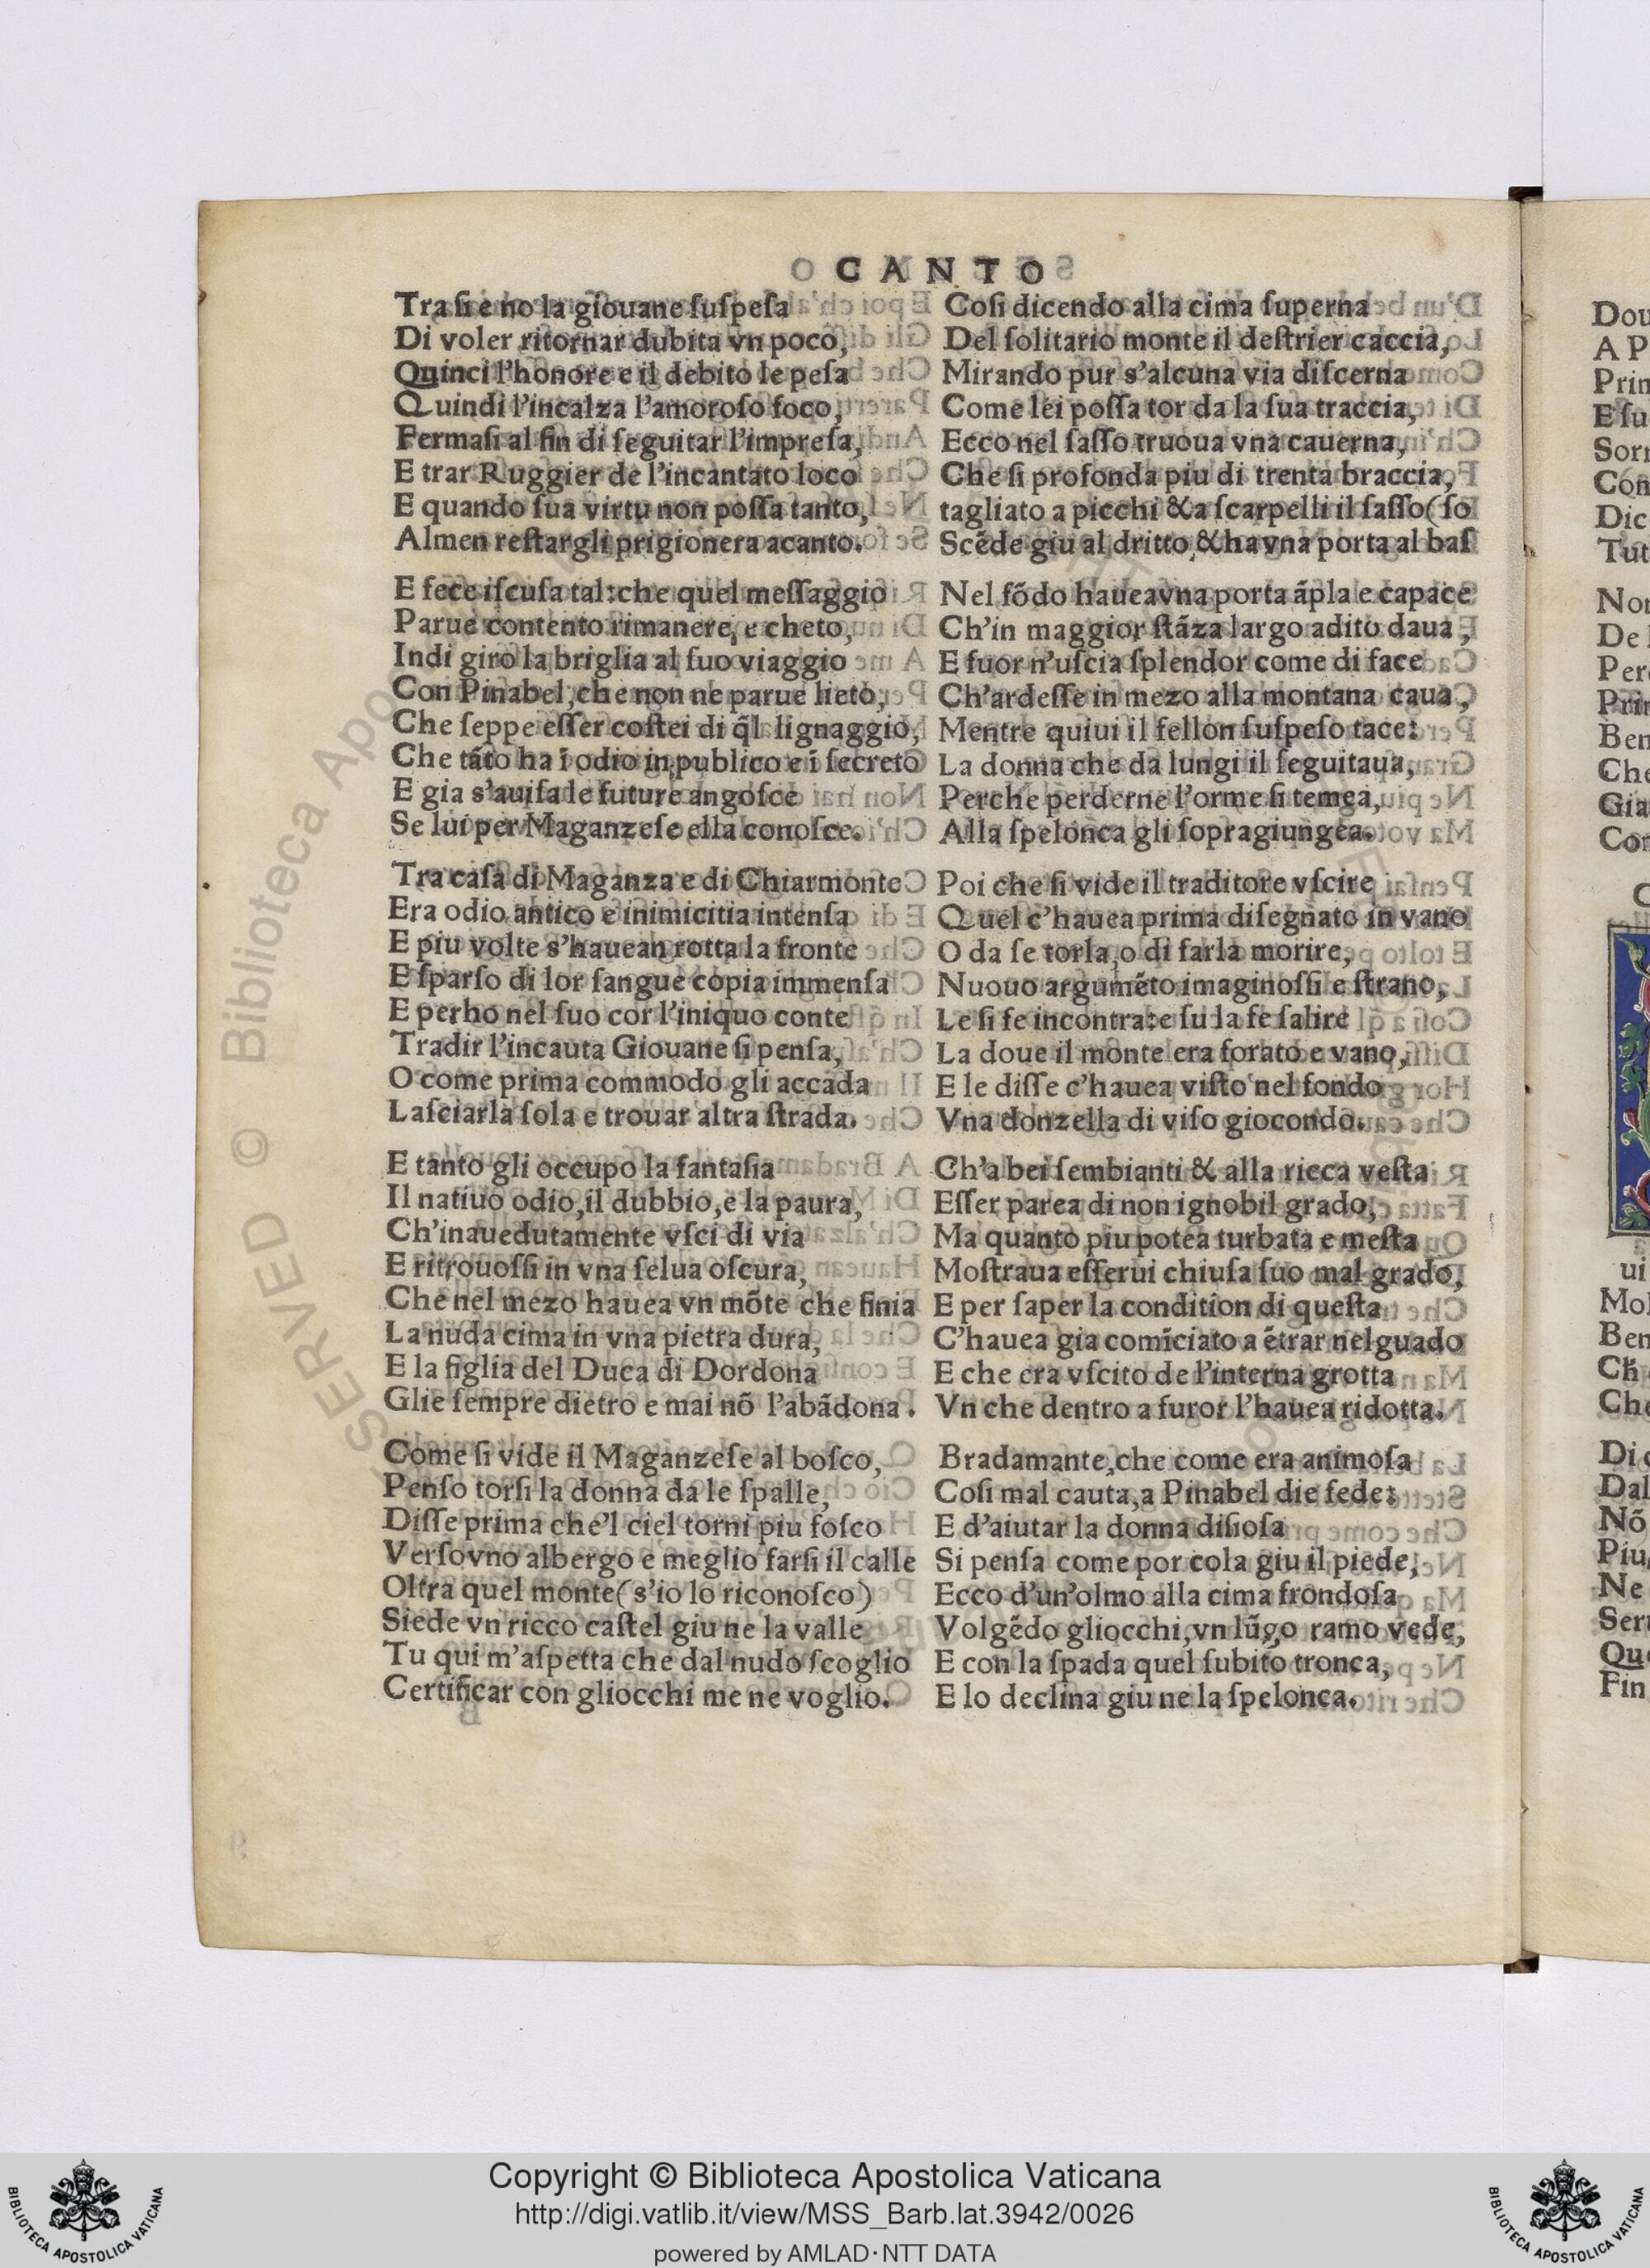 CANTO
Tra si e no la giouane ſuſpeſa
Di voler ritornar dubita vn poco,
Quinci l'honore e il debito le peſa
Quindi l'incalza l'amoroſo foco,
Fermaſi al fin di ſeguitar l'impreſa,
E trar Ruggier de l'incantato loco
E quando ſua virtu non poſſa tanto,
Almen reſtargli prigionera acanto.
E fece iſcuſa tal:che quel meſſaggio
Parue contento rimanere, e cheto,
Indi giro la briglia al ſuo viaggio
Con Pinabel, che non ne parue lieto,
Che ſeppe eſſer coſtei di q̃l lignaggio,
Che tãto ha ĩ odio in publico e ĩ ſecreto
E gia s'auiſa le future angoſce
Se lui per Maganzeſe ella conoſce.
Tra caſa di Maganza e di Chiarmonte
Era odio antico e inimicitia intenſa
E piu volte s'hauean rotta la fronte
E ſparſo di lor ſangue copia immenſa
E perho nel ſuo cor l'iniquo conte
Tradir l'incauta Giouane ſi penſa,
O come prima commodo gli accada
Laſciarla ſola e trouar altra ſtrada.
E tanto gli occupo la fantaſia
Il natiuo odio,il dubbio,e la paura,
Ch'inauedutamente vſci di via
E ritrouoſſi in vna ſelua oſcura,
Che nel mezo hauea vn mõte che finia
La nuda cima in vna pietra dura,
E la figlia del Duca di Dordona
Glie ſempre dietro e mai nõ l'abãdona.
Come ſi vide il Maganzeſe al boſco,
Penſo torſi la donna da le ſpalle,
Diſſe prima che'l ciel torni piu foſco
Verſovno albergo e meglio farſi il calle
Oltra quel monte(s'io lo riconoſco)
Siede vn ricco caſtel giu ne la valle
Tu qui m'aſpetta che dal nudo ſcoglio
Certificar con gliocchi me ne voglio.
Coſi dicendo alla cima ſuperna
Del ſolitario monte il deſtrier caccia,
Mirando pur s'alcuna via diſcerna
Come lei poſſa tor da la ſua traccia,
Ecco nel ſaſſo truoua vna cauerna,
Che ſi profonda piu di trenta braccia,
tagliato a picchi & a ſcarpelli il ſaſſo(ſo
Scẽde giu al dritto,& ha vna porta al baſ
Nel fõdo haueavna porta ãpla e capace
Ch'in maggior ſtãza largo adito daua,
E fuor n'uſcia ſplendor come di face
Ch'ardeſſe in mezo alla montana caua,
Mentre quiui il fellon ſuſpeſo tace:
La donna che da lungi il ſeguitaua,
Perche perderne l'orme ſi temea,
Alla ſpelonca gli ſopragiungea.
Poi che ſi vide il traditore vſcire
Quel c'hauea prima diſegnato in vano
O da ſe torla,o di farla morire,
Nuouo argumẽto imaginoſſi e ſtrano,
Le ſi fe incontra:e ſu la fe ſalire
La doue il monte era forato e vano,
E le diſſe c'hauea viſto nel fondo
Vna donzella di viſo giocondo.
Ch'a bei ſembianti & alla ricca veſta
Eſſer parea di non ignobil grado,
Ma quanto piu potea turbata e meſta
Moſtraua eſſerui chiuſa ſuo mal grado,
E per ſaper la condition di queſta
C'hauea gia comĩciato a ẽtrar nel guado
E che era vſcito de l'interna grotta
Vn che dentro a furor l'hauea ridotta.
Bradamante,che come era animoſa
Coſi mal cauta,a Pinabel die fede:
E d'aiutar la donna diſioſa
Si penſa come por cola giu il piede,
Ecco d'un'olmo alla cima frondoſa
Volgẽdo gliocchi,vn lũgo ramo vede,
E con la ſpada quel ſubito tronca,
E lo declina giu ne la ſpelonca.
Dou
A P
Prin
E ſu
Sorr
Con
Dic
Tut
Non
De l
Per
Prin
Ben
Che
Gia
Con
C
ui
Mol
Ben
Ch
Che
Di
Dal
Nõ
Piu
Ne
Ser
Qu
Fin
SERVED © Biblioteca Apos
Copyright © Biblioteca Apostolica Vaticana
http://digi.vatlib.it/view/MSS_Barb.lat.3942/0026
powered by AMLAD·NTT DATA
BIBLIOTECA APOSTOLICA VATICANA
BIBLIOTECA APOSTOLICA VATICANA